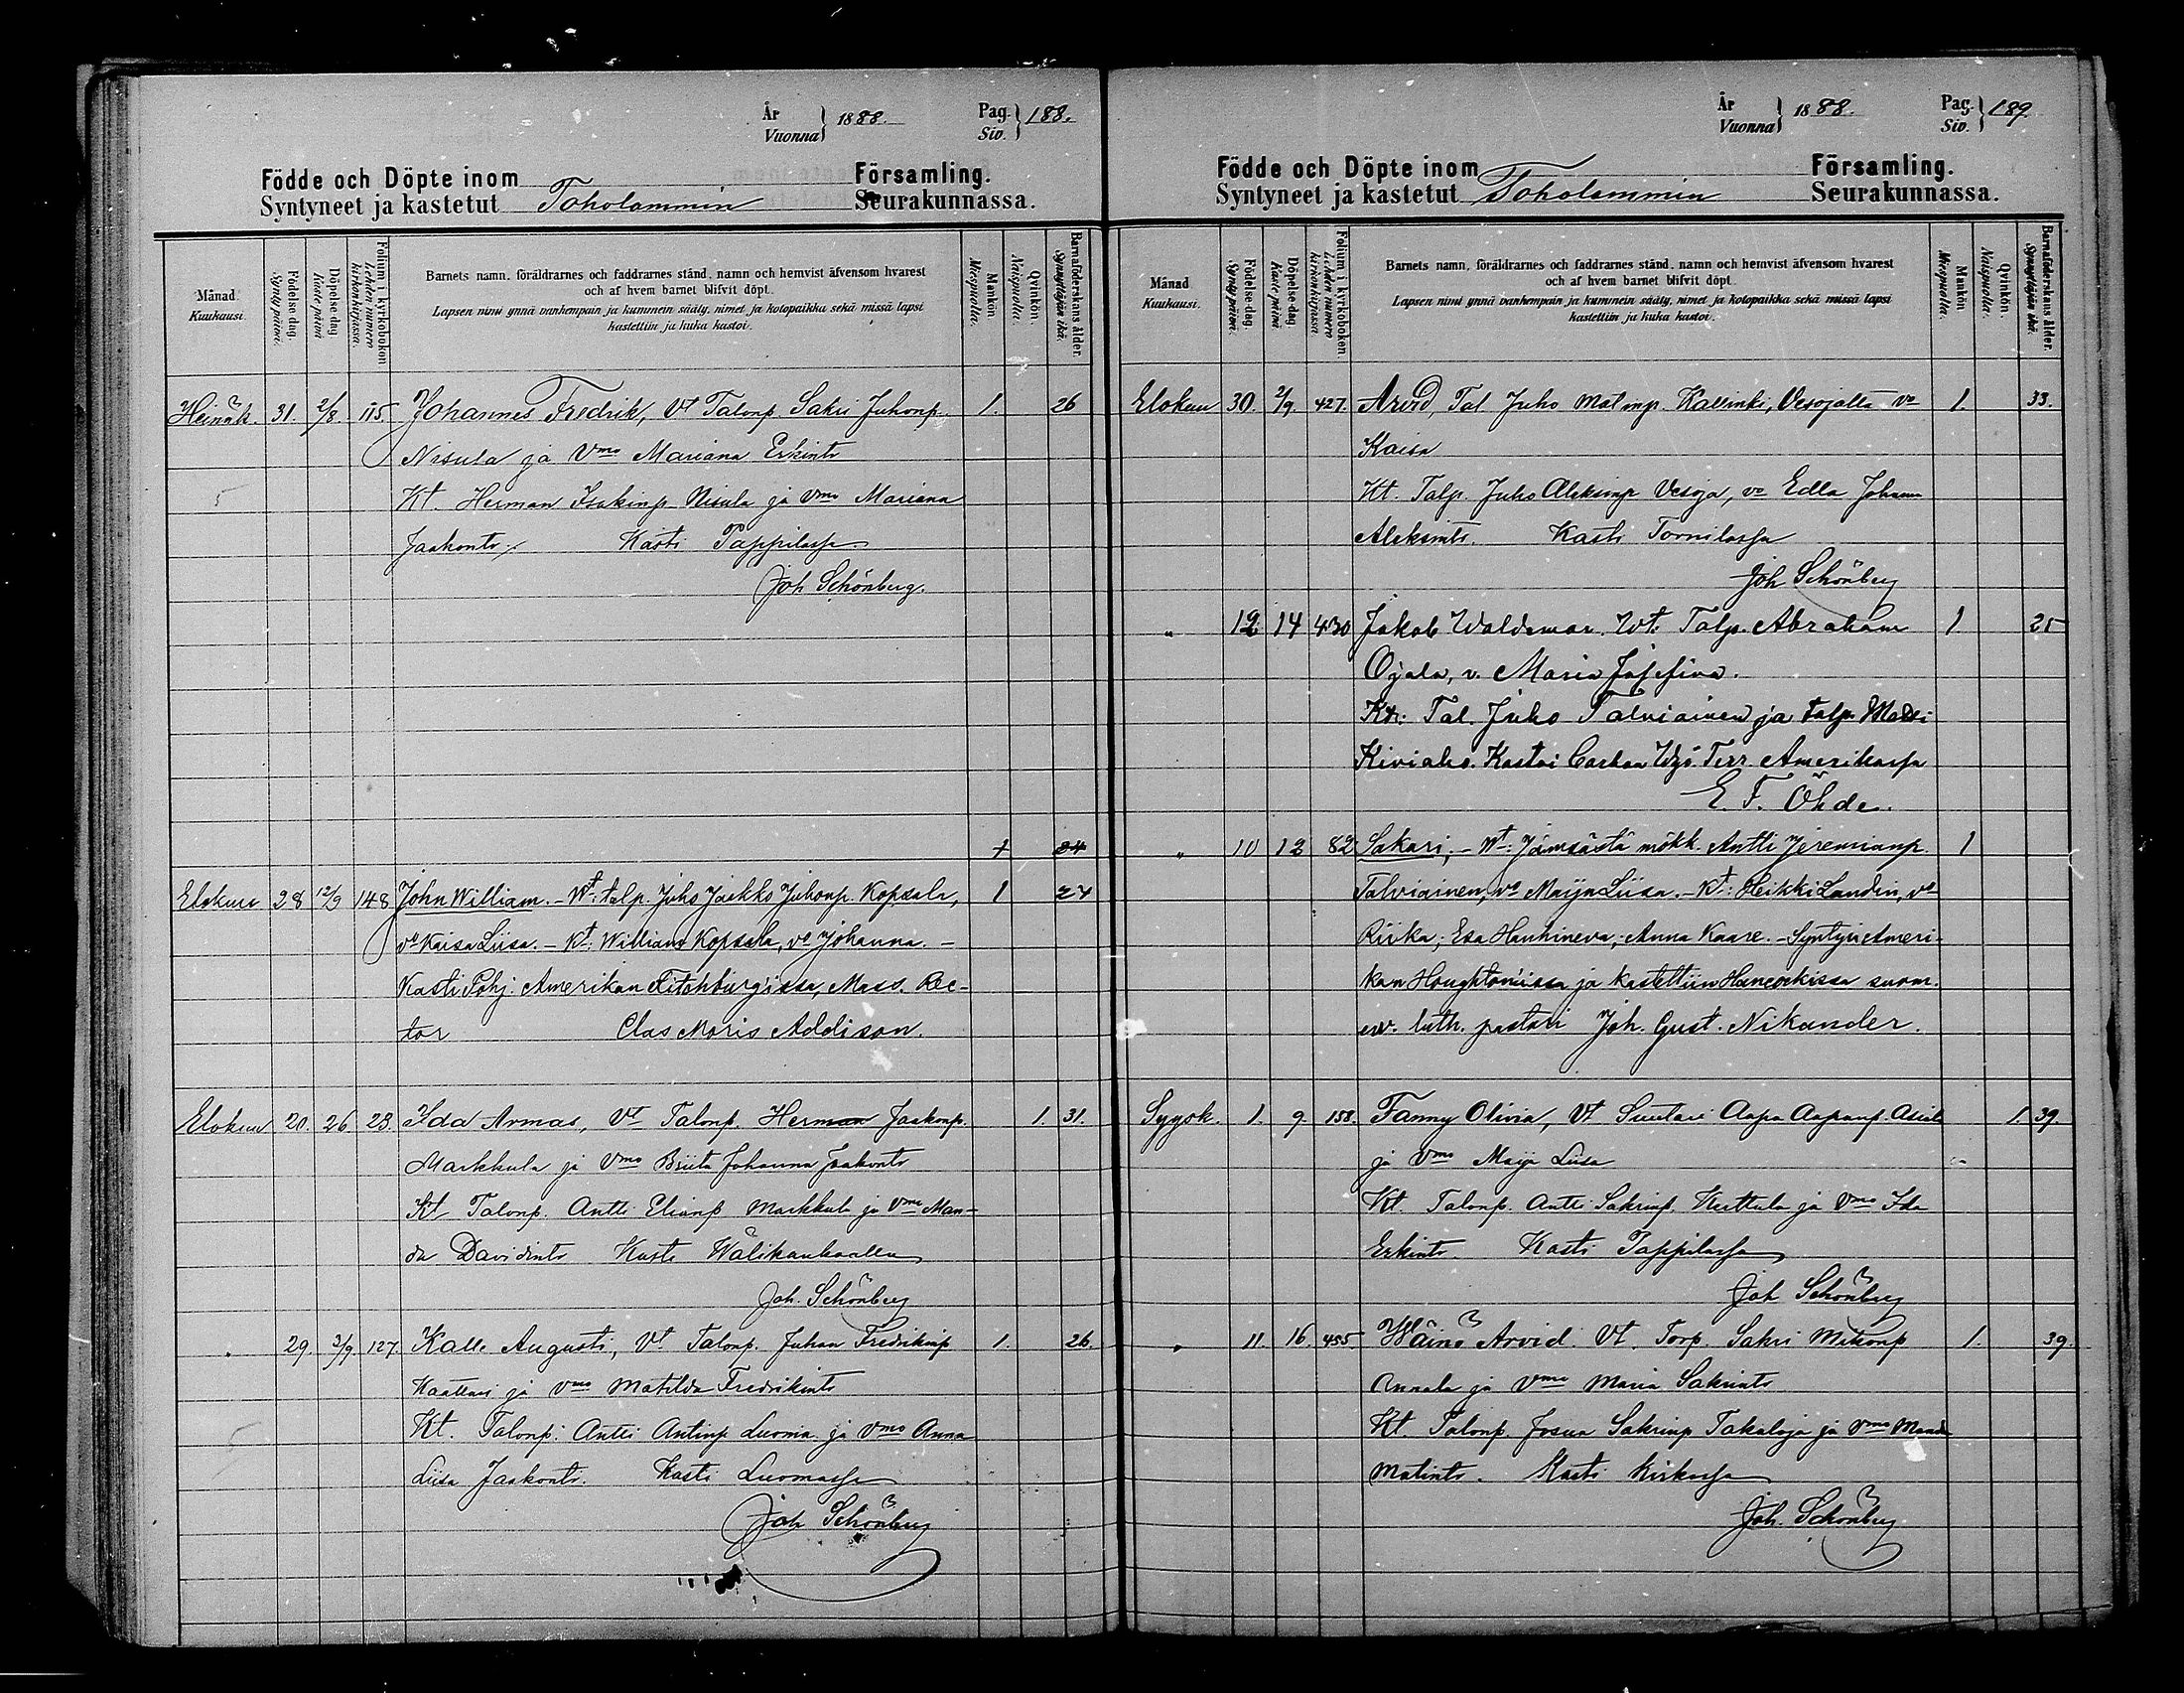 År
Vuonna } 1888.
Pag.
Siv. } 188.
Födde och Döpte inom Församling.
Syntyneet ja kastetut Toholammin Seurakunnassa.
Månad.
Kuukausi.
Födelse-dag.
Syntypäivä.
Döpelse-dag.
Kaste päivä
Folium i kyrkoboken
Lehden numero kirkonkirjassa.
Barnets namn, föräldrarnes och faddrarnes stånd, namn och hemvist äfvensom hvarest
och af hvem barnet blifvit döpt.
Lapsen nimi ynnä vanhempain ja kummein sääty, nimet ja kotopaikka sekä missä lapsi
kastettiin ja kuka kastoi.
Mankön
Miespuolta.
Qvinkön.
Naispuolta.
Barnaföderskans ålder.
Synnyttäjän ikä.
Heinäk. 31. 2/8 115. Johannes Fredrik, Vt Talonp. Sakri Juhonp. 1. 26
Nisula ja Vmo Mariana Erkint
Kt. Herman Isakinp. Nisula ja vmo Mariana
Jaakont. Kasti Pappilassa
Joh Schönberg.
+ 24
Elokuu 28 12/9 148 John William. – Wt: talp. Juho Jaakko Juhonp. Kopsala, 1 27
vo Kaisa Liisa. – Kt: William Kopsala, vo Johanna. –
Kasti Pohj: Amerikan Fitchburg'issa, Mass. Rec-
tor Clas Moris Addison.
Elokuu 20. 26 23. Ida Armas, Vt Talonp. Herman Jaakonp. 1. 31.
Markkula ja Vmo Briita Johanna Jaakont
Kt Talonp. Antti Elianp Markkula ja Vmo Man-
da Davidint Kasti Wälikankaalla
Joh. Schönberg
" 29. 3/9. 127. Kalle Augusti, Vt Talonp. Juhan Fredrikinp 1. 26.
ja vmo Matilda Fredrikint
Kt. Talonp. Antti Antinp Luoma ja vmo Anna
Liisa Jaakont. Kasti Luomassa
Joh Schönberg
År
Vuonna } 1888.
Pag.
Siv. } 189.
Födde och Döpte inom Församling.
Syntyneet ja kastetut Toholammin Seurakunnassa.
Månad
Kuukausi.
Födelse-dag.
Syntypäivä.
Döpelse-dag
Kaste päivä
Folium i kyrkoboken
Lehden numero kirkonkirjassa
Barnets namn, föräldrarnes och faddrarnes stånd, namn och hemvist äfvensom hvarest
och af hvem barnet blifvit döpt.
Lapsen nimi ynnä vanhempain ja kummein sääty, nimet ja kotopaikka sekä missä lapsi
kastettiin ja kuka kastoi.
Mankön
Miespuolta.
Qvinkön.
Naispuolta.
Barnaföderskans ålder.
Synnyttäjän ikä.
Elokuu 30. 2/9. 427. Arvid, Tal Juho Matinp. Kallinki, Vesojalla vo 1. 33.
Kaisa
Kt. Talp. Juho Aleksinp Vesoja, vo Edla Johanna
Aleksint. Kasti Tornilassa
Joh Schönberg
" 12 14 430 Jakob Waldemar. Wt. Talp. Abraham 1 25
Ojala, v. Maria Josefina.
Kt: Tal. Juho Talviainen ja talp. Matti
Kiviaho. Kastoi Carbon Wyo. Terr. Amerikassa
E. F. Öhde.
" 10 12 82 Sakari, – Wt: Jämsästä mökk. Antti Jeremianp. 1
Talviainen, vo Maija Liisa. – Kt: Heikki Landin, vo
Riikka; Esa Hankineva; Anna Kaare. – Syntyi Ameri-
kan Houghton'issa ja kastettiin Hancockissa suom.
ev. luth. pastori Joh. Gust. Nikander.
Syysk. 1. 9. 158. Fanny Olivia, Vt Suutari Aapra Aapranp. Asiala 1. 39.
ja Vmo Maija Liisa
Kt. Talonp. Antti Sakrinp. Kerttula ja Vmo Ida
Erkint Kasti Pappilassa
Joh Schönberg
" 11. 16. 455. Wäinö Arvid. Vt. Torp. Sakri Mikonp 1. 39.
Annala ja Vmo Maria Sakrint
Kt. Talonp. Josua Sakrinp Takaloja ja Vmo Manda
Matint. Kasti Kirkossa
Joh. Schönberg